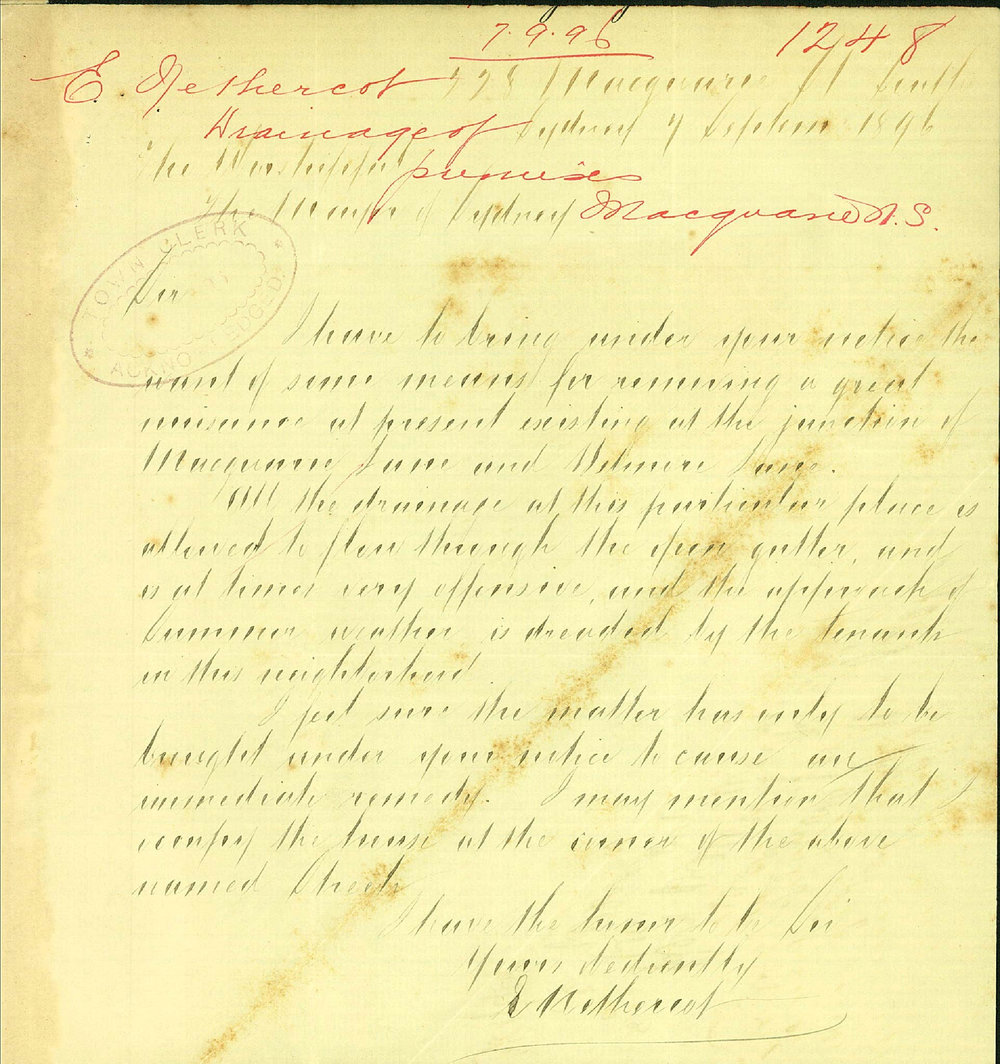 7.9.96
1248
E. Nethercot
Drainage of
premises
Macquarie St. S.
228 Macquarie St South
Sydney 7 Septem 1896
The Worshipful
The Mayor of Sydney
TOWN CLERK
ACKNOWLEDGED
Sir
I have to bring under your notice the
want of some means for removing a great
nuisance at present existing at the junction of
Macquarie Lane and Lane.
All the drainage at this particular place is
allowed to flow through the open gutter, and
is at times very offensive, and the approach of
Summer weather is dreaded by the tenants
in this neighborhood
I feel sure the matter has only to be
brought under your notice to cause an
immediate remedy. I may mention that I
occupy the house at the corner of the above
named Streets
I have the honor to be Sir
Yours obediently
E Nethercot